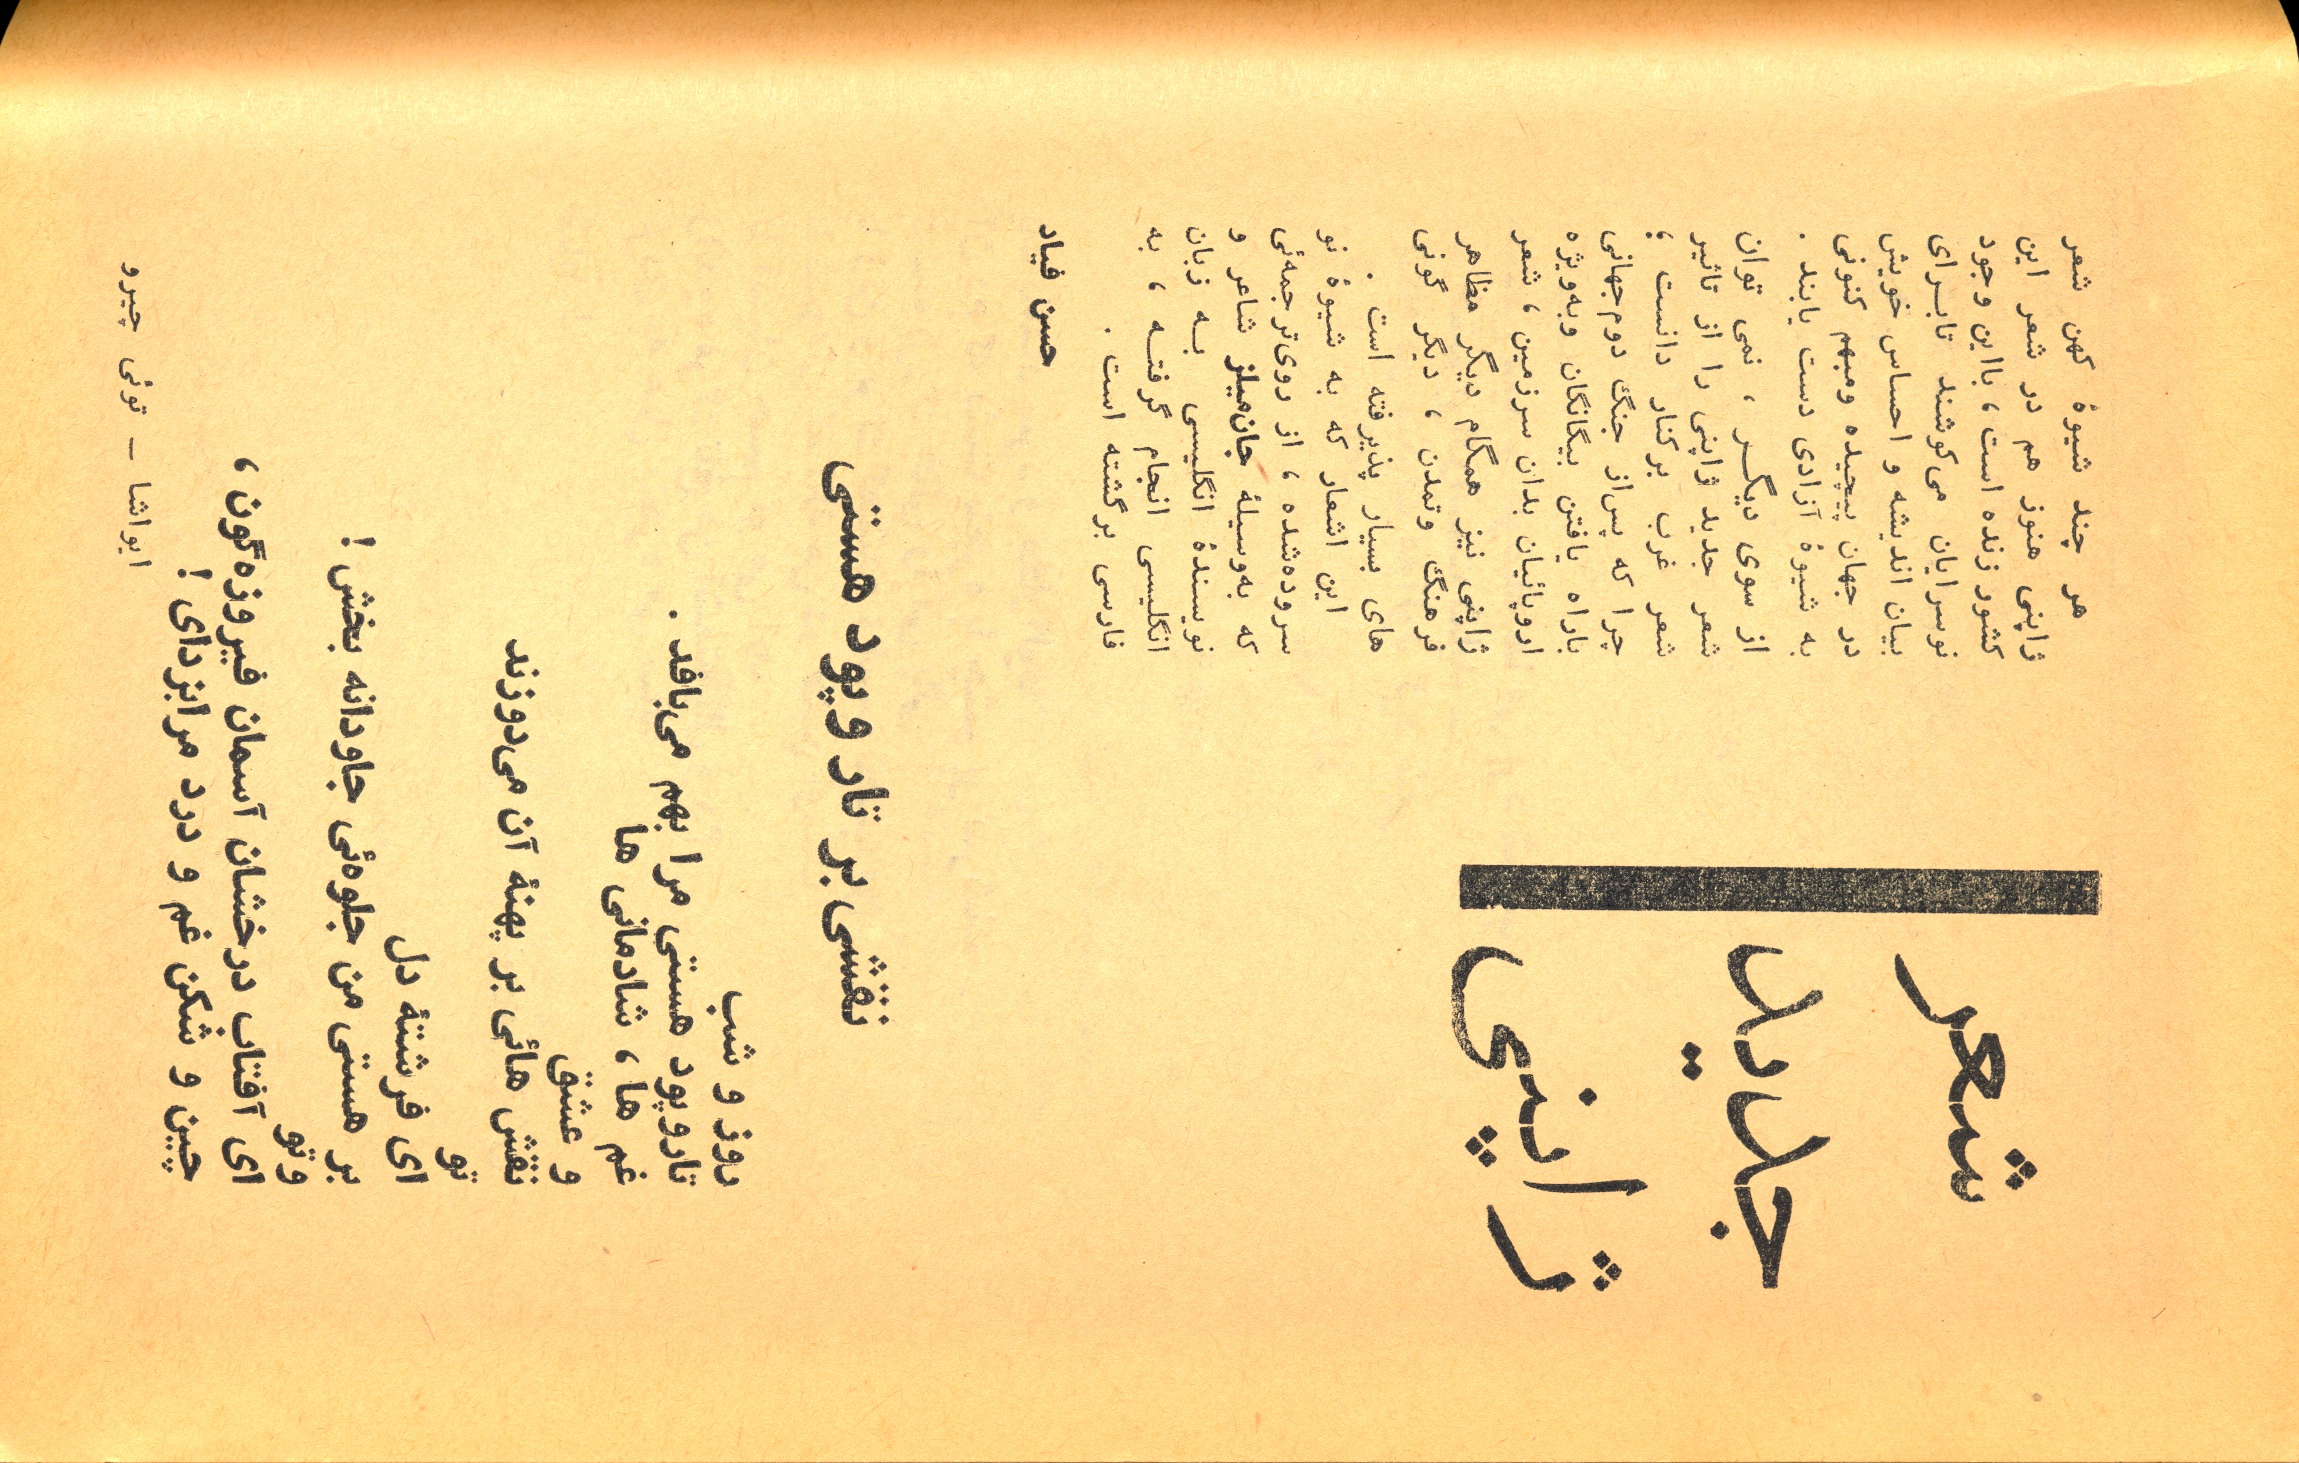 شعر
جدید
ژاپنی
هر چند شیوهٔ کهن شعر
ژاپنی هنوز هم در شعر این
کشور زنده است، بااین وجود
نوسرایان می‌کوشند تابرای
بیان اندیشه و احساس خویش
در جهان پیچیده ومبهم کنونی
به شیوهٔ آزادی دست یابند .
از سوی دیگر ، نمی توان
شعر جدید ژاپنی را از تاثیر
شعر غرب برکنار دانست ؛
چرا که پس‌از جنگ دوم‌جهانی
باراه یافتن بیگانگان وبه‌ویژه
اروپائیان بدان سرزمین، شعر
ژاپنی نیز همگام دیگر مظاهر
فرهنگ وتمدن ، دیگر گونی
های بسیار پذیرفته است .
این اشعار که به شیوهٔ نو
سروده‌شده، از روی‌ترجمه‌ئی
که به‌وسیلهٔ جان‌میلز شاعر و
نویسندهٔ انگلیسی به زبان
انگلیسی انجام گرفته ، به
فارسی برگشته است .
حسن فیاد
نقشی بر تار و پود هستی
روز و شب
تاروپود هستی مرا بهم می‌بافد .
غم ها، شادمانی ها
و عشق
نقش هائی بر پهنهٔ آن می‌دوزند
تو
ای فرشتهٔ دل
بر هستی من جلوه‌ئی جاودانه بخش !
وتو
ای آفتاب درخشان آسمان فیروزه‌گون،
چین و شکن غم و درد مرابزدای !
ایواشا – توئی چیرو